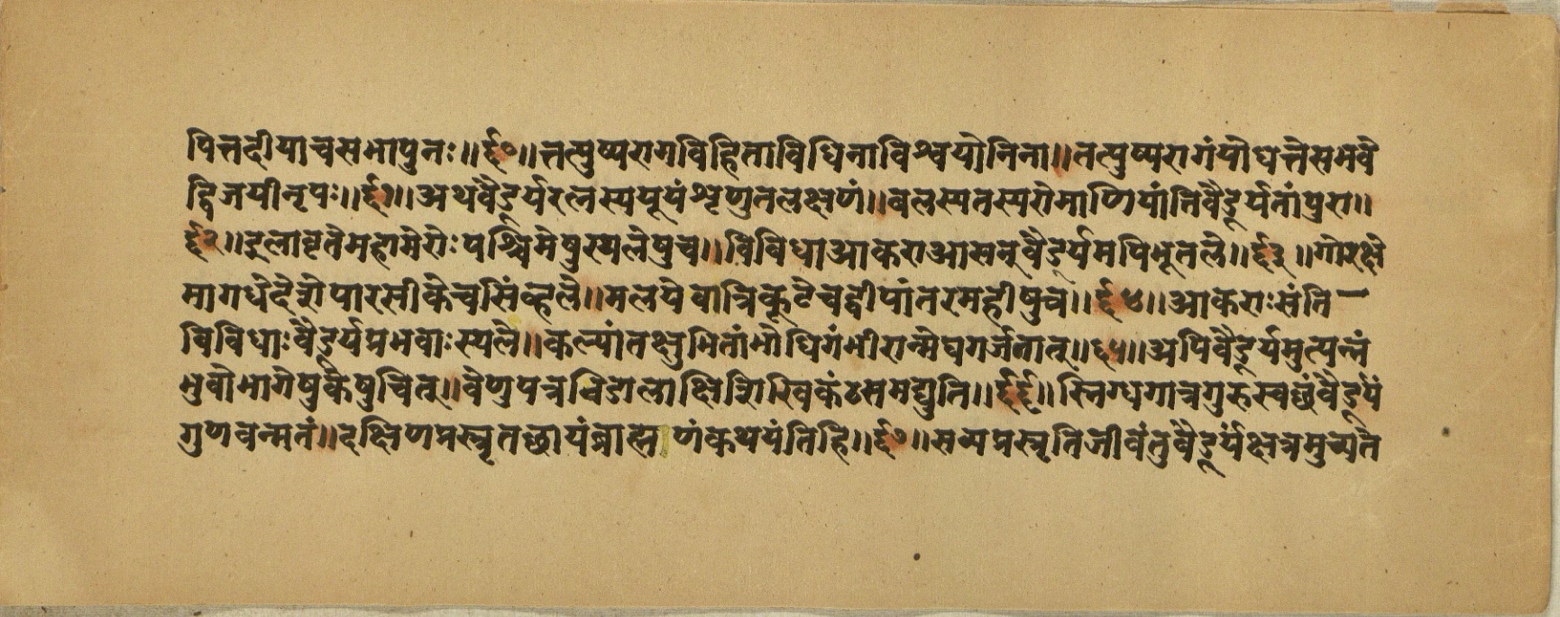 पित्तदीयाचसभापुनः॥६०॥त्तत्पुष्परागविहिताविधिनाविश्वयोनिना॥तत्पुष्परागंयोधत्तेसभवे
द्विजयीनृपः॥६१॥अथवैडूर्यरत्नस्ययूयंशृणुतलक्षणं॥बलस्यतस्यरोमाणियांतिवैडूर्यतांपुरा॥
६२॥इलावृतेमहामेरोःपश्चिमेषुस्थलेषुच॥विविधाआकराआसन्वैडूर्यमपिभूतले॥६३॥गोरक्षे
मागधेदेशेपारसीकेचसिंव्हले॥मलयेवात्रिकूटेचद्वीपांतरमहीषुच॥६४॥आकराःसंति—
विविधाःवैडूर्यप्रभवाःस्थले॥कल्पांतक्षुभितांभोधिगंभीरान्मेघगर्जतात्॥६५॥अपिवैडूर्यमुत्पन्नं
भुवोभागेषुकेषुचित्॥वेणुपत्रबिडालाक्षिशिखिकंठसमद्युति॥६६॥स्निग्धगात्रगुरुस्वछंवैडूर्यं
गुणवन्मतं॥दक्षिणप्रस्नृतछायंब्राह्मणंकथयंतिहि॥६७॥सव्यप्रस्नृतिजीवंतुवैडूर्यंक्षत्रमुच्यते